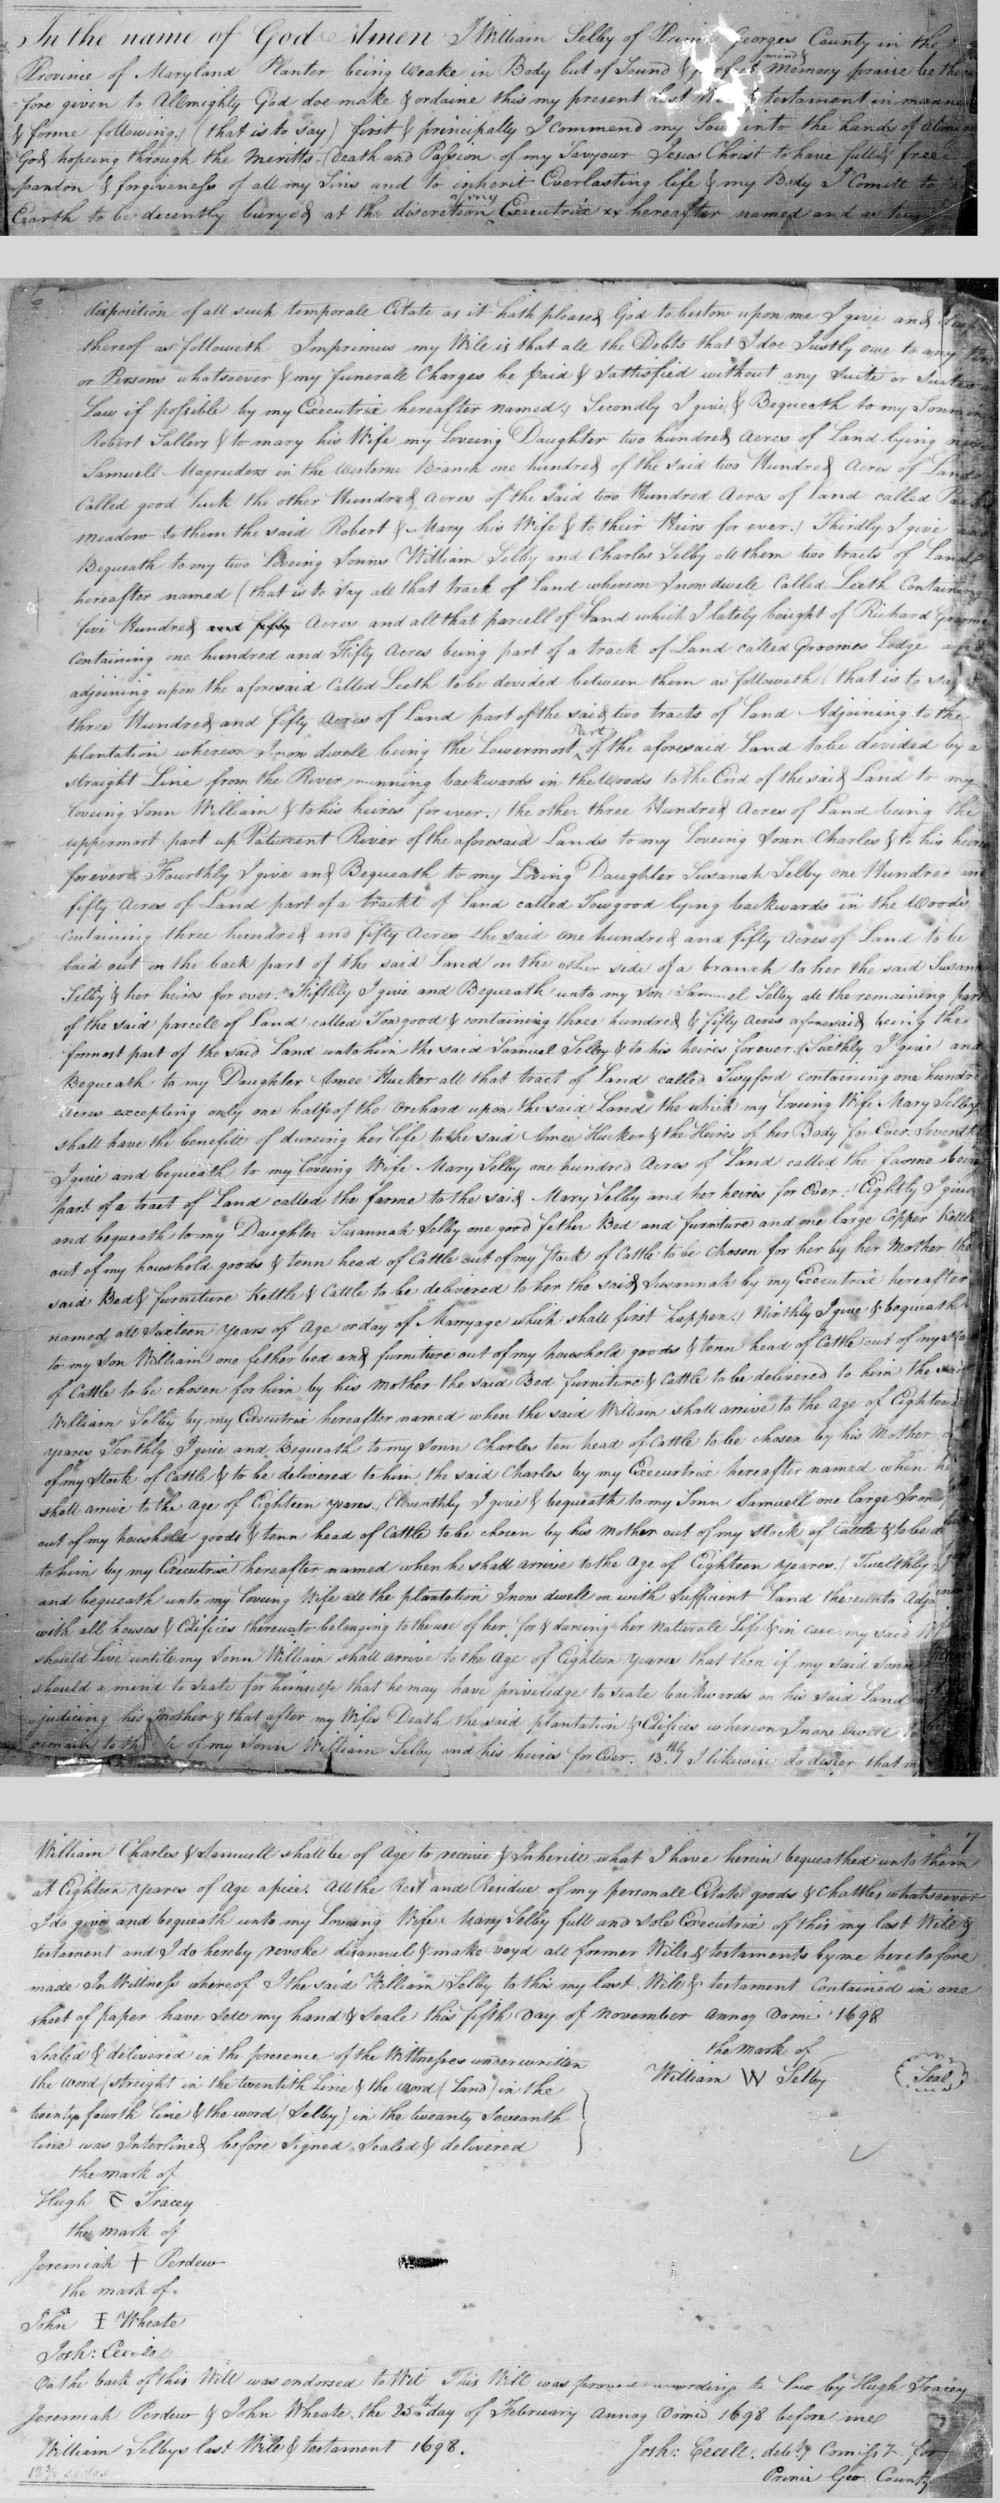 In the name of God Amen I William Selby of Prince Georges County in the
Province of Maryland Planter being Weake in Body but of Sound & perfect mind & Memory praise be there
fore given to Allmighty God doe make & ordaine this my present Last Will & testament in manner
& forme following. (that is to say) first & principally I commend my Soul into the hands of Almigh
God hopeing through the Meritts Death and Passion of my Savyour Jesus Christ to have full & free
pardon & forgiveness of all my Sins and to inherit Everlasting life & my Body I Comitt to
Earth to be decently buryed at the discretion of my Executrix hereafter named and as
disposition of all such temporale Estate as it hath pleased God to bestow upon me I give and
thereof as followeth Imprimus my Will is that all the Debts that I doe Justly owe to any
or Persons whatsoever & my funerall Charges be paid & Sattisfied without any Suite or Suites
Law if possible by my Executrix hereafter named, Secondly I give & Bequeath to my Sonn
Robert Sallers & to mary his Wife my Loveing Daughter two hundred Acres of Land lying
Samuell Magruders in the Westerne Branch one hundred of the said two Hundred Acres of Land
Called good luck the other Hundred Acres of the Said two Hundred Acres of land called
meadow to them the said Robert & Mary his Wife & to their Heirs for ever. Thirdly I give
Bequeath to my two Loveing Sonns William Selby and Charles Selby all them two tracts of Land
hereafter named (that is to say all that track of Land whereon I now dwell Called Leeth Containing
five Hundred and fifty Acres and all that parcell of Land which I lately bought of Richard Groome
Containing one hundred and Fifty Acres being part of a track of Land called Groomes Lodge and
adjoining upon the aforesaid Called Leeth to be devided between them as followeth (that is to say
three Hundred and fifty Acres of Land part of the said two tracts of land Adjoining to the
plantation whereon I now dwell being the Lowermost Part of the aforesaid Land to be devided by a
straight Line from the River running backwards in the Woods to the End of the said Land to my
Loveing Sonn William & to his heires for ever. the other three Hundred Acres of Land being the
uppermost part up Patuxent River of the aforesaid Lands to my Loveing Sonn Charles & to his heires
forever. Fourthly I give and Bequeath to my Loving Daughter Susanah Selby one Hundred and
fifty Acres of Land part of a trackt of Land called Towgood lying backwards in the Woods
Containing three hundred and fifty Acres the said one hundred and fifty Acres of Land to be
laid out on the back part of the said Land on the other side of a branch to her the said Susan
Selby & her heirs for ever. Fifthly I give and Bequeath unto my Son Samuel Selby all the remaining part
of the said parcell of Land called Towgood & containing three hundred & fifty Acres aforesaid being the
formost part of the said Land unto him the said Samuel Selby & to his heires forever. Sixthly I give and
Bequeath to my Daughter Amee Hucker all that tract of Land called Twyford containing one hundred
Acres excepting only one halfe of the Orchard upon the said Land the which my Loveing Wife Mary Selby
shall have the benefitt of dureing her life to the said Amee Hucker & the Heires of her Body for Ever. Seventhly
I give and bequeath to my loveing Wife Mary Selby one hundred Acres of Land called the farme being
part of a tract of Land called the farme to the said Mary Selby and her heires for Ever. Eightly I give
and bequeath to my Daughter Susannah Selby one good fether Bed and furniture and one large Copper Kettle
out of my houshold goods & tenn head of Cattle out of my Stock of Cattle to be chosen for her by her Mother the
said Bed & furniture Kettle & Cattle to be delivered to her the said Susannah by my Executrix hereafter
named att Sixteen Years of Age or day of Marryage which shall first happen. Ninthly I give & bequeath
to my Son William one fether bed and furniture out of my houshold goods & tenn head of Cattle out of my
of Cattle to be chosen for him by his Mother the said Bed furniture & Cattle to be delivered to him the said
William Selby by my Executrix hereafter named when the said William shall arrive to the Age of Eighteen
years. Tenthly I give and Bequeath to my Sonn Charles ten head of Cattle to be chosen by his Mother
of my Stock of Cattle & to be delivered to him the said Charles by my Executrix hereafter named when he
shall arrive to the age of Eighteen years. Eleventhly I give & bequeath to my Sonn Samuell one large Iron
out of my houshold goods & tenn head of Cattle to be chosen by his Mother out of my stock of Cattle & to be
to him by my Executrix hereafter named when he shall arrive to the Age of Eighteen Yeares. Twelthly
and bequeath unto my loveing Wife all the plantation I now dwell on with Sufficient Land thereunto
with all houses & Edifices thereunto belonging to the use of her for & dureing her Naturale Life & in case my said
should Live untill my Sonn William shall arrive to the Age of Eighteen Yeares that then if my said Sonn
should a mind to Seate for himselfe that he may have priviledge to seate backwards on his said Land
judicing his Mother & that after my Wifes Death the said plantation & Edifices whereon I now dwell
remain to the of my Sonn William Selby and his heires for Ever. 13th I likewise do desier that
7
William Charles & Samuell shall be of Age to receive & Inheritt what I have herein bequeathed unto them
at Eighteen yeares of Age apice. All the Rest and Residue of my personale Estate goods & Chattles whatsoever
I do give and bequeath unto my Loveing Wife Mary Selby full and Sole Executrix of this my last Will &
testament and I do hereby revoke disannull & make voyd all former Wills & testaments by me heretofore
made In Wittness whereof I the said William Selby to this my last Will & testament Contained in one
sheet of paper have Sett my hand & Seale this fifth Day of November Annoq Domi 1698
Sealed & delivered in the presence of the Wittnesses underwritten
the word (streight in the twentith Line & the word (Land) in the
twenty fourth line & the word (Selby) in the tweanty Seveanth
line was Interlined before signed Sealed & delivered
the mark of
William W Selby
Seal
the mark of
Hugh Tracey
the mark of
Jeremiah + Perdew
the mark of
John I Wheate
Josh: Cecils
On the back of this Will was endorsed to Wit This Will was proved according to Law by Hugh Tracey
Jeremiah Perdew & John Wheate, the 25th day of February Annoq Domi 1698 before me
William Selbys last Will & testament 1698.
Josh: Cecell. debty Comisr for
Prince Geo County